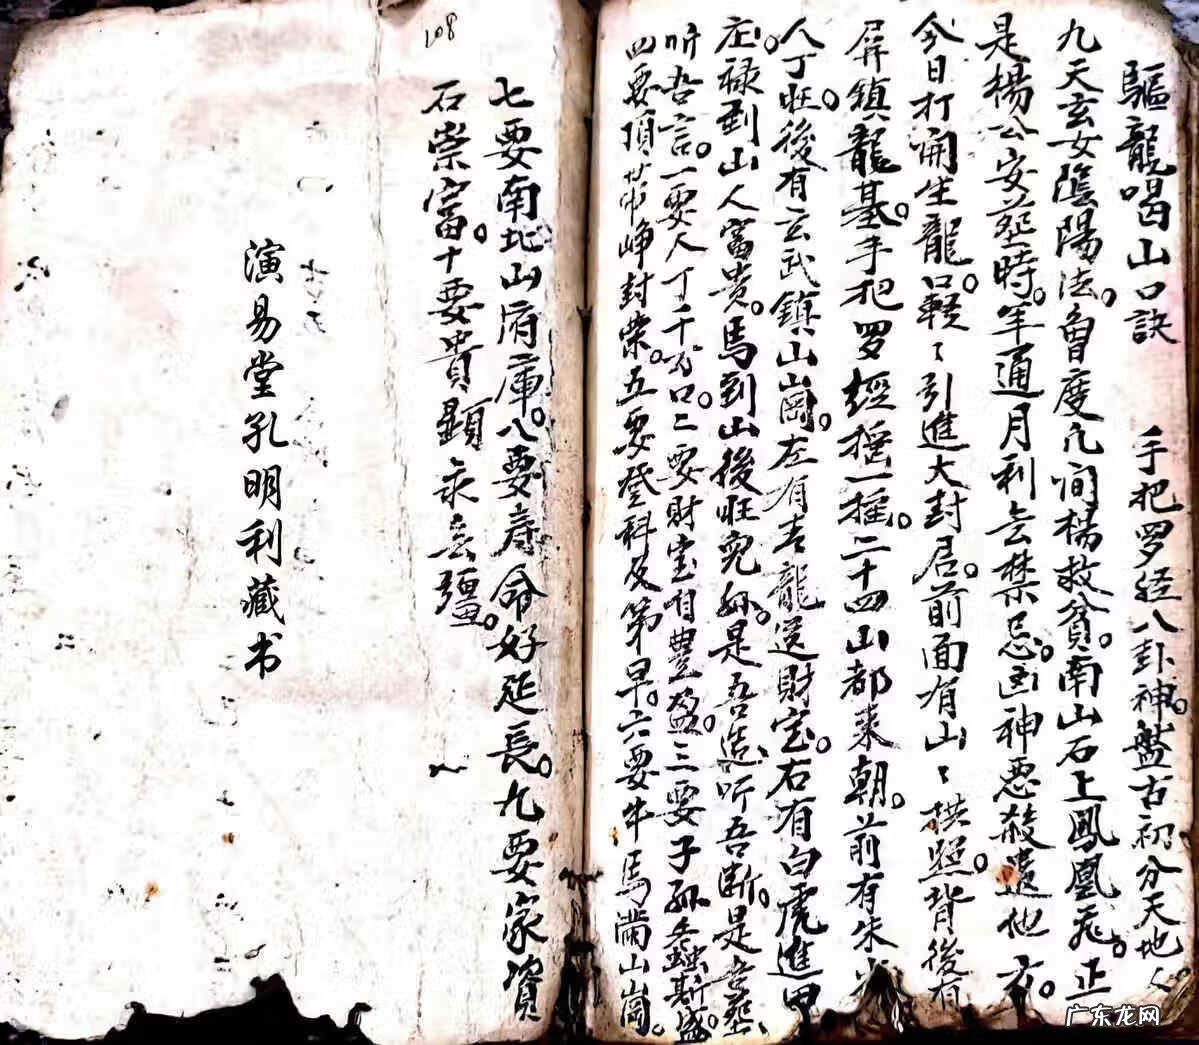 驅龍喝山口訣 手把罗经八卦神。盤古初分天地人
九天玄女陰陽法。曾度凡间楊救貧。南山石上鳳凰飛。正
是楊公安塟時。年通月利無禁忌。凶神恶殺遠他方。
今日打開生龍口輕〻引進大封居。前面有山〻拱照。背後有
屏鎮龍基。手把罗經摇一摇。二十四山都来朝。前有朱雀
人丁旺。後有玄武鎮山崗。左有青龍送財宝。右有白虎進田
庄。禄到山人富貴。馬到山後旺兒孫。是吾造听吾断。是吾塟
听吾言。一要人丁千万口。二要財宝自豊盈。三要子孫螽斯盛。
四要頂峥封荣。五要登科及第早。六要牛馬滿山崗。
108
七要南北山府庫。八要寿命好延長。九要家資
石崇富。十要貴顯永無疆。
演易堂孔明利藏书
广东龙网